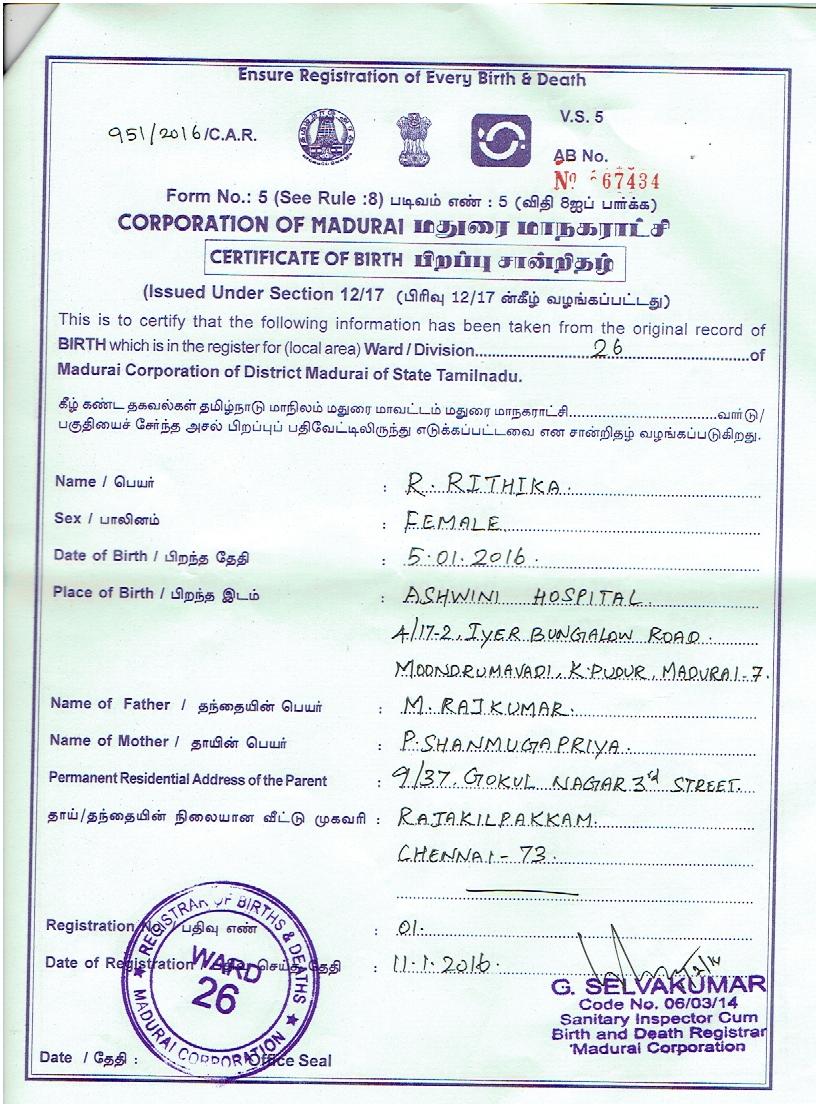 Ensure Registration of Every Birth & Death
951/2016/C.A.R.
V.S. 5
AB No.
No 67434
Form No.: 5 (See Rule :8) படிவம் எண் : 5 (விதி 8ஐப் பார்க்க)
CORPORATION OF MADURAI மதுரை மாநகராட்சி
CERTIFICATE OF BIRTH பிறப்பு சான்றிதழ்
(Issued Under Section 12/17 (பிரிவு 12/17 ன்கீழ் வழங்கப்பட்டது)
This is to certify that the following information has been taken from the original record of
BIRTH which is in the register for (local area) Ward / Division 26 of
Madurai Corporation of District Madurai of State Tamilnadu.
கீழ் கண்ட தகவல்கள் தமிழ்நாடு மாநிலம் மதுரை மாவட்டம் மதுரை மாநகராட்சி வார்டு/
பகுதியைச் சேர்ந்த அசல் பிறப்புப் பதிவேட்டிலிருந்து எடுக்கப்பட்டவை என சான்றிதழ் வழங்கப்படுகிறது.
Name / பெயர் : R. RITHIKA.
Sex / பாலினம் : FEMALE
Date of Birth / பிறந்த தேதி : 5.01.2016.
Place of Birth / பிறந்த இடம் : ASHWINI HOSPITAL
4/17-2, IYER BUNGALOW ROAD
MOONDRUMAVADI, K.PUDUR, MADURAI-7.
Name of Father / தந்தையின் பெயர் : M. RAJKUMAR.
Name of Mother / தாயின் பெயர் : P. SHANMUGAPRIYA.
Permanent Residential Address of the Parent : 9/37. GOKUL NAGAR 3rd STREET.
தாய்/தந்தையின் நிலையான வீட்டு முகவரி : RAJAKILPAKKAM.
CHENNAI-73.
Registration No. / பதிவு எண் : 01.
Date of Registration / செய்த தேதி : 11.1.2016.
REGISTRAR OF BIRTHS & DEATHS
WARD
26
MADURAI CORPORATION
G. SELVAKUMAR
Code No. 06/03/14
Sanitary Inspector Cum
Birth and Death Registrar
Madurai Corporation
Date / தேதி : Office Seal